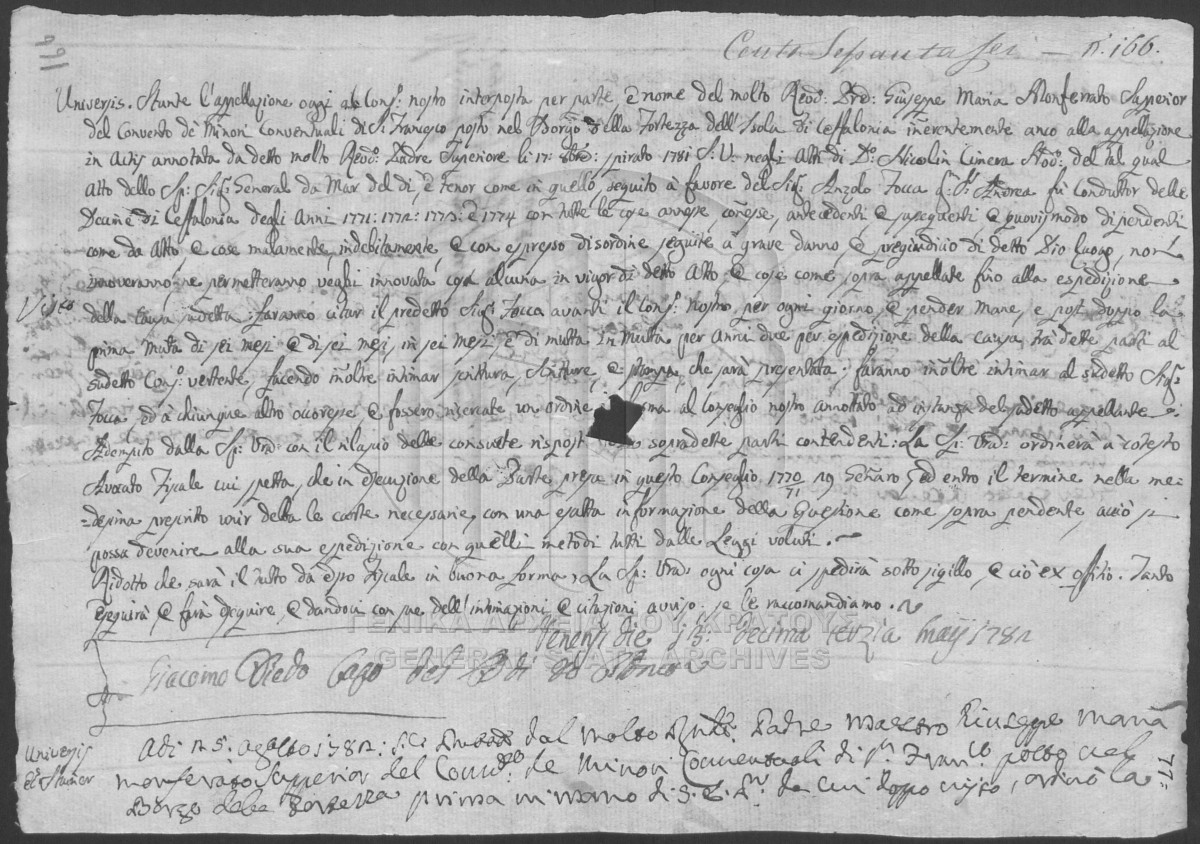 166
Cento Sessanta sei — n.º 166.
Universis. Stante l'appellazione oggi al Cons.º nostro interposta per parte, e nome del molto Revd.º Prd.e Giuseppe Maria Monferrato Superior
del Convento de Minori Conventuali di S. Franc.co posto nel Borgo della Fortezza dell'Isola di Ceffalonia inerentemente anco alla appellazione
in Actis annotata da detto molto Revd.º Padre Superiore li 17: 8bre: spirato 1781 S: V: negli Atti di D.º Nicolin Cimera Nod.º del tal qual
Atto dello Sp: Sig.r General da Mar del dì, e tenor come in quello, seguito à favore del Sig.r Anzolo Focca q.m Sr. Andrea fù Conduttor delle
Decime di Ceffalonia degli Anni 1771: 1772: 1773: e 1774 con tutte le cose annesse, connesse, antecedenti, e susseguenti e quovismodo dipendenti
come da Atto, e cose malamente, indebitamente, e con espresso disordine seguite a grave danno, e pregiudicio di detto Pio luogo, non
innoveranno, ne permetteranno venghi innovata cosa alcuna in vigor di detto Atto e cose come sopra appellate fino alla espedizione
della Causa sudetta. Faranno citar il predetto Sig.r Focca avanti il Cons.º Nostro, per ogni giorno, e pender Mane, e post doppo la
prima Muta di sei mesi e di sei mesi, in sei mesi, e di mutta in Mutta per Anni due per espedizione della causa, trà dette parti al
sudetto Cons.º vertente, facendo inoltre intimar scrittura, scritture, e stampa, che sarà presentata; faranno inoltre intimar al sudetto Sig.r
Focca, ed à chiunque altro occoresse e fossero ricercate un ordine al Conseglio nostro annottato ad instanza del sudetto appellante.
Adempito dalla Sp: Vra: con il rilascio delle consuete rispost sopradette parti contendenti: La Sp: Vra: ordinerà a cotesto
Avocato Fiscale cui spetta, che in esecuzione della Parte presa in questo Conseglio 1770/71 19 Genaro, ed entro il termine nella me=
=desima prescritto unir debba le carte necessarie, con una esatta informazione della Questione come sopra pendente, acciò si
possa devenire alla sua espedizione con quelli metodi tutti dalle Leggi voluti.
Ridotto che sarà il tutto da esso Fiscale in buona forma, La Sp: Vra: ogni cosa ci spedirà sotto sigillo, e ciò ex offitio. Tanto
eseguirà e farà eseguire, e dandoci con sue dell'intimazioni, e citazioni avviso, se le raccomandiamo.
Veneris die 13: decima terzia Maij 1782
Giacomo Diedo Capo del
Adi 25. agosto 1782: S: V: dal Molto Rnd.º Padre Maestro Giuseppe Maria
monferato Superior del Conv.to de Minori Conventuali di S.n Fran.co posto nel
Borgo della Fortezza prima in mano di S. E. P.r da cui doppo visto, ordinò la
Visto
Universis
ΓΕΝΙΚΑ ΑΡΧΕΙΑ ΤΟΥ ΚΡΑΤΟΥΣ
GENERAL STATE ARCHIVES